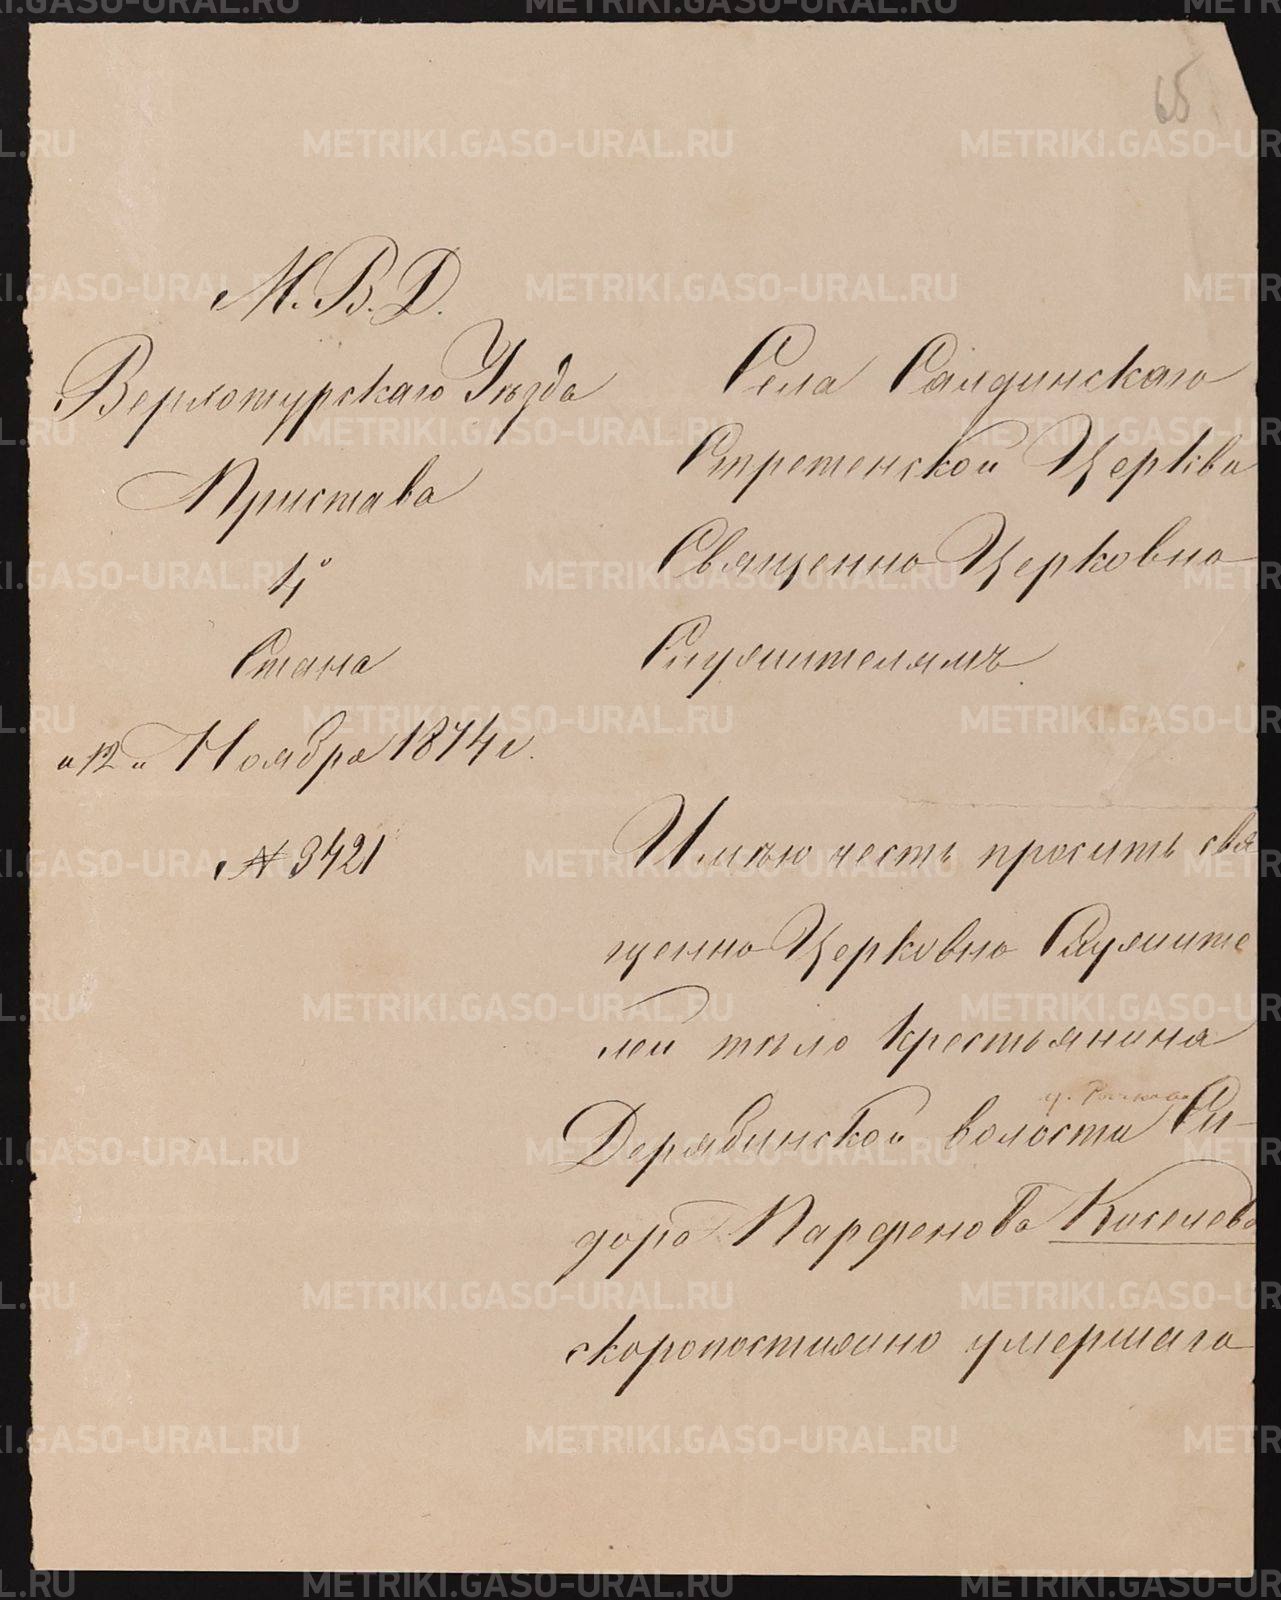 65
М. В. Д.
Верхотурскаго Уѣзда
Пристава
4º
Стана
"12" Ноября 1874 г.
№ 3421
Села Салдинскаго
Стретенской Церкви
Священно Церковно
Служителямъ
Имѣю честь просить свя
щенно Церковно Служите
лей тѣло Крестьянина
Дерябинской волости Си-
дора Парфенова Киселева
скоропостижно умершаго
METRIKI.GASO-URAL.RU